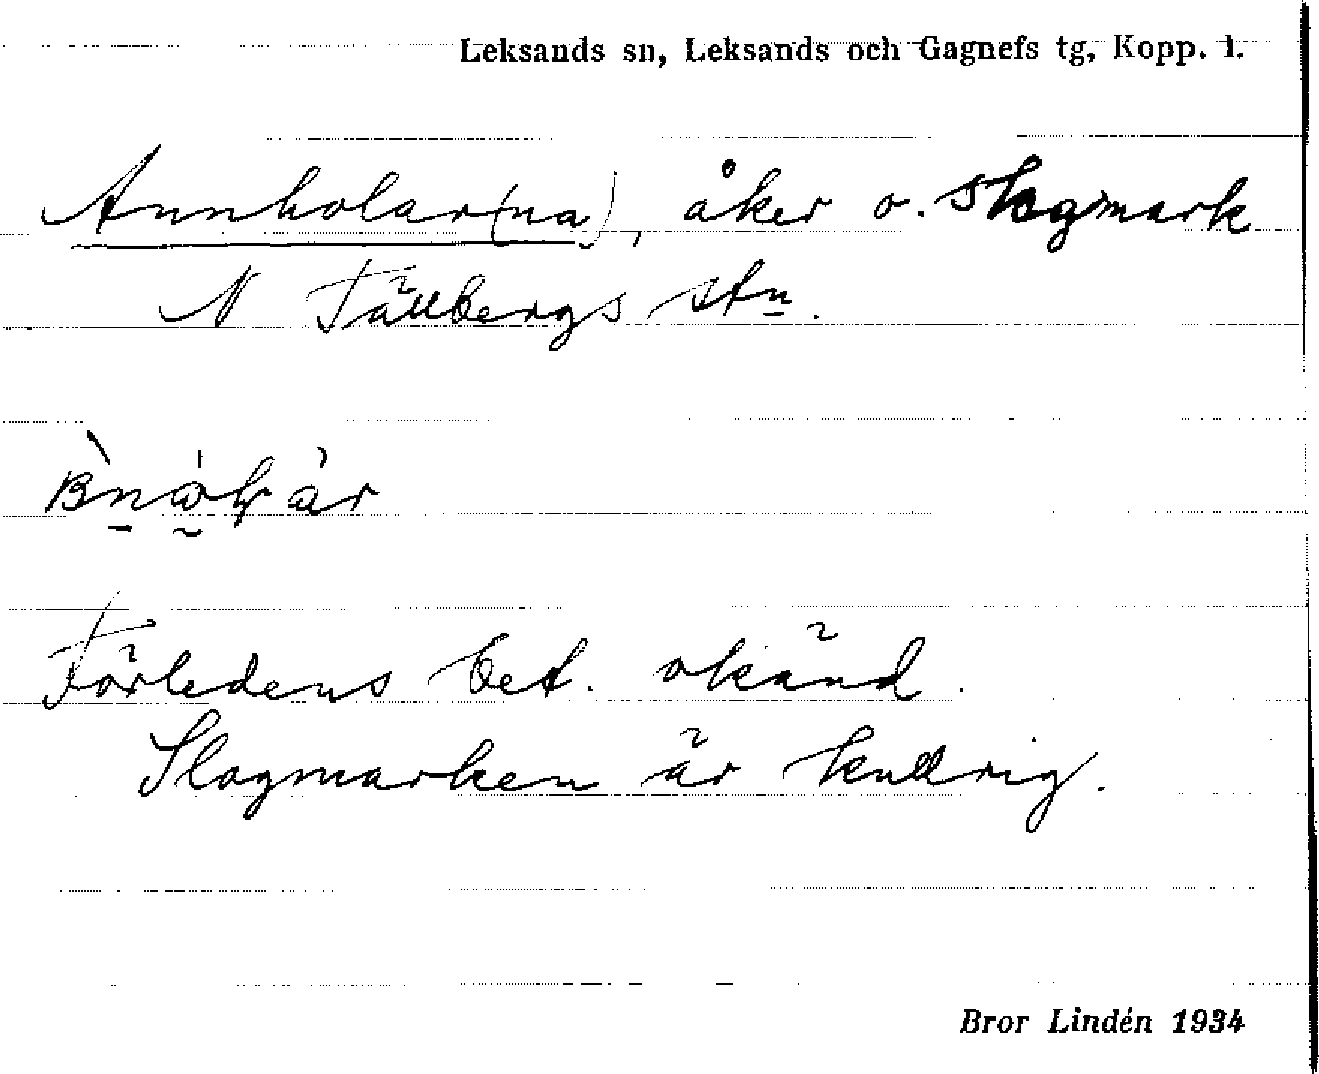 Leksands sn, Leksands och Gagnefs tg, Kopp. l.
Annholar(na), åker o. slogmark
N Tällbergs stn.
Förledens bet. okänd.
Slogmarken är kullrig.
Bror Lindén 1934